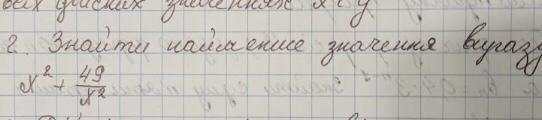 значеннях x і y
2. Знайти найменше значення виразу
x² + 49/x²